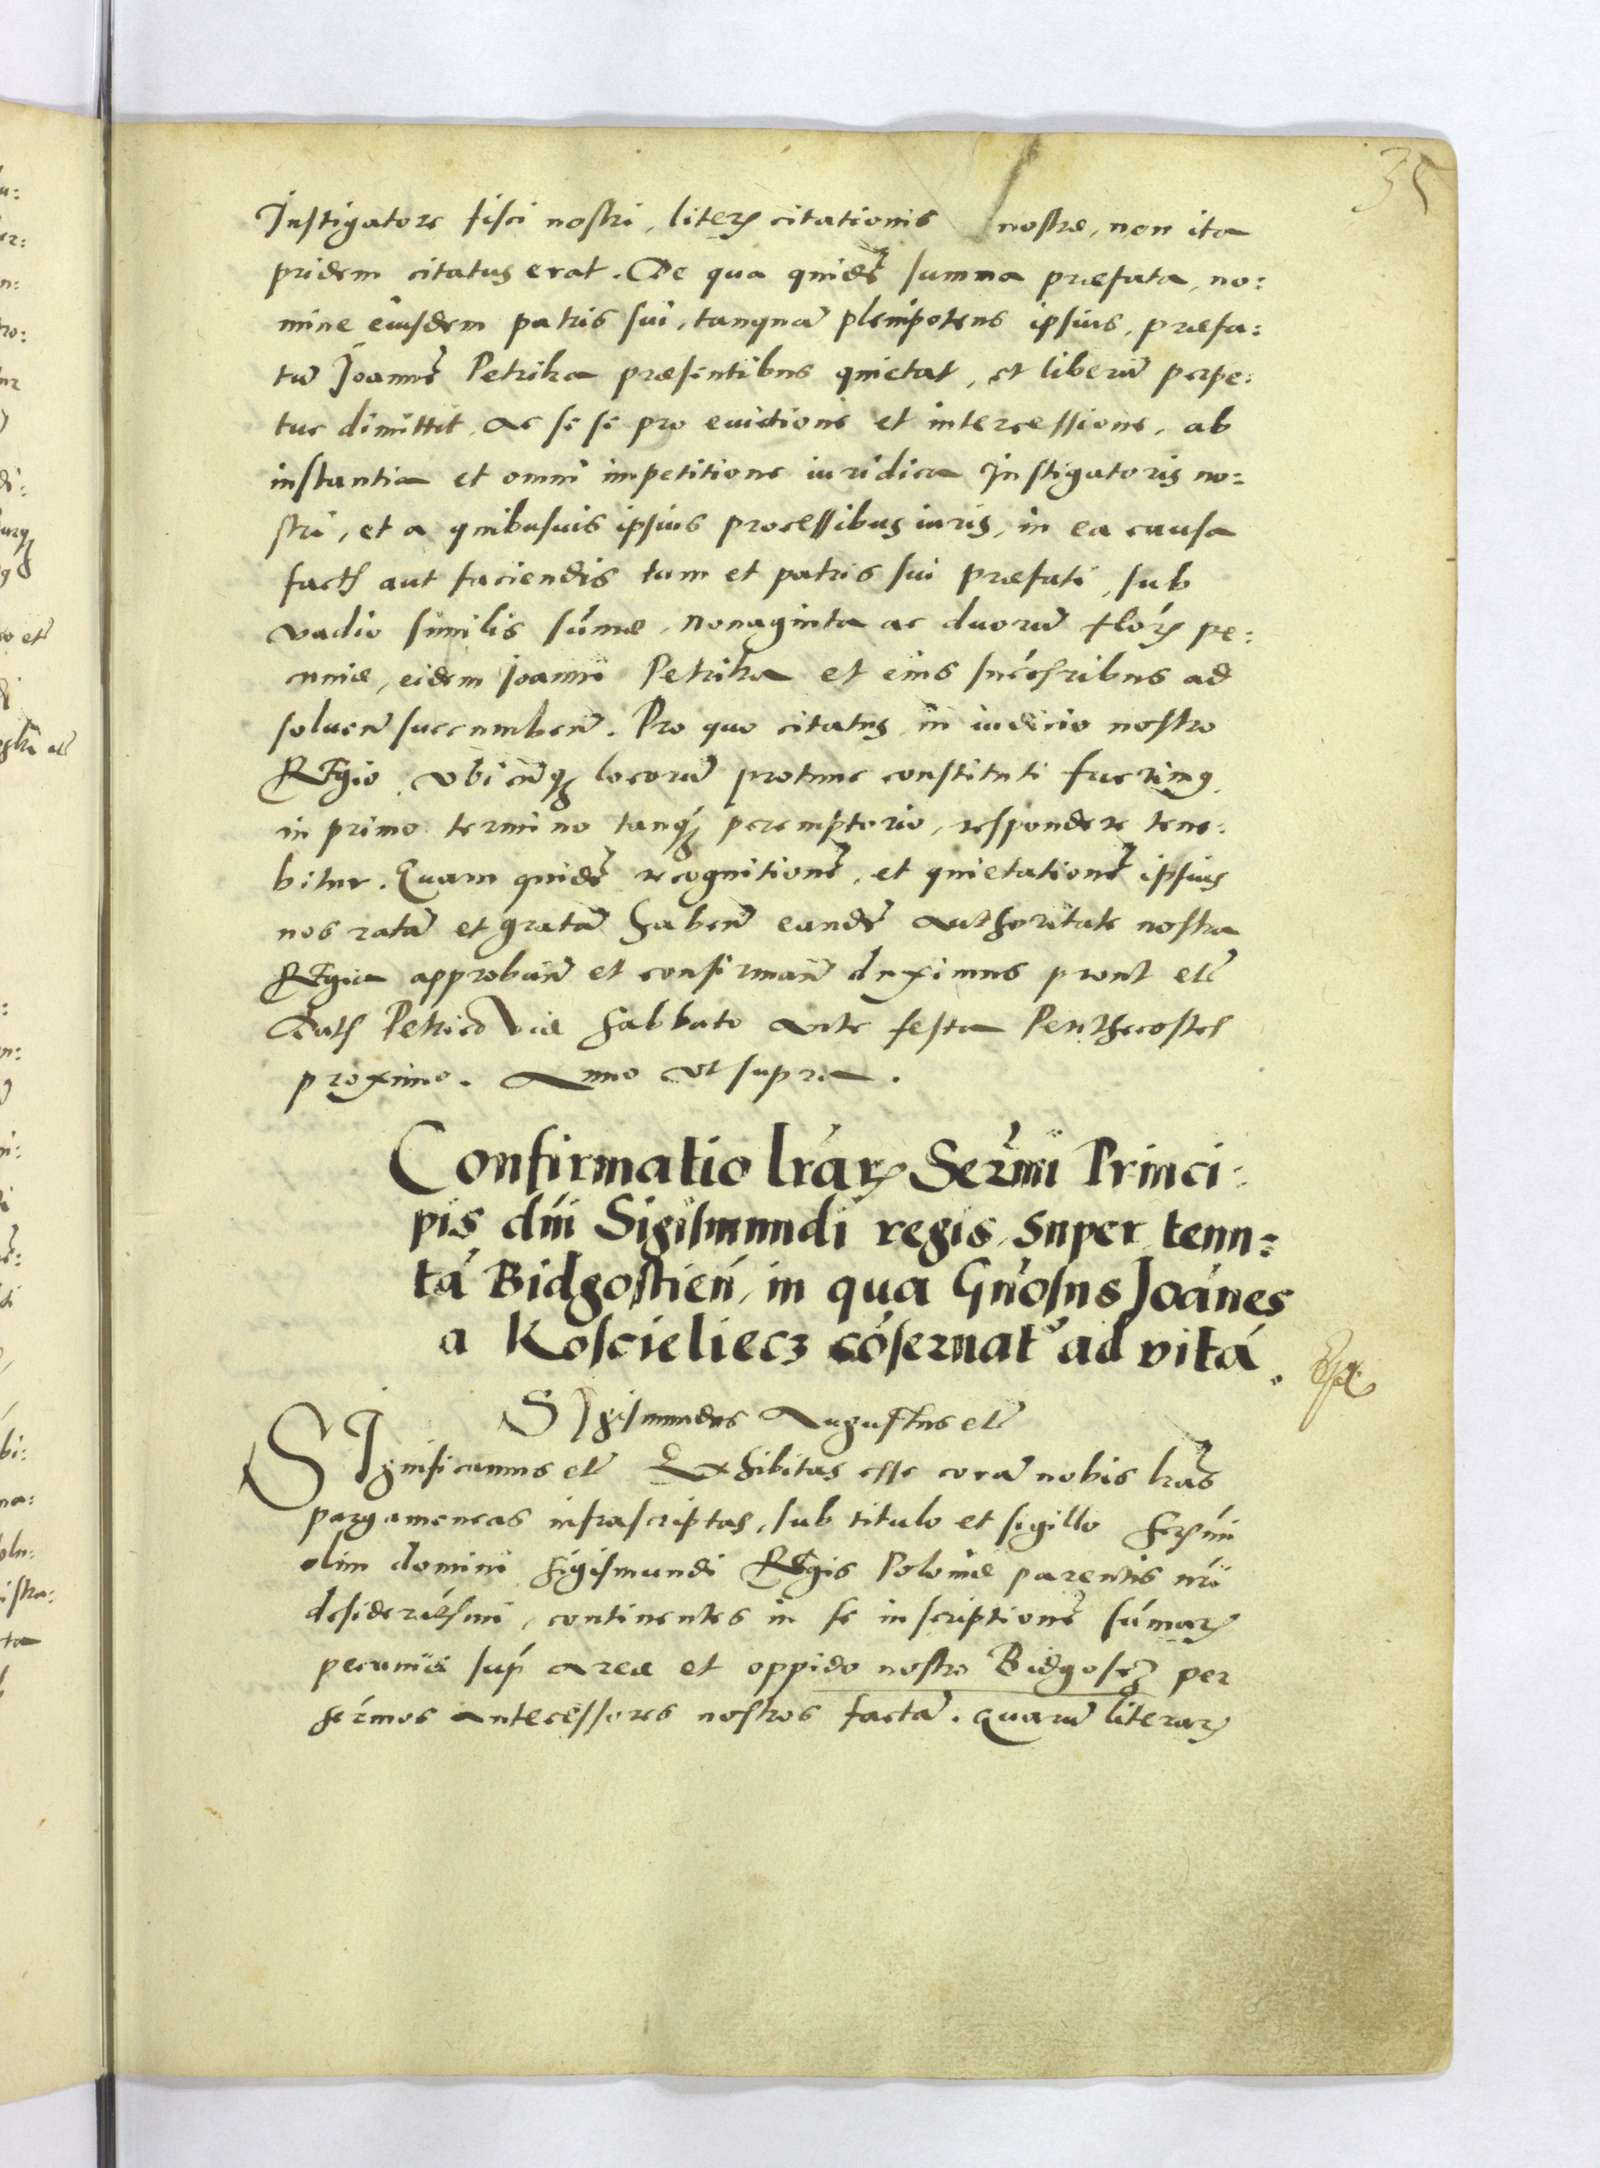 35
Instigatore fisci nostri, literꝝ citationis nostræ, non ita
pridem citatus erat. De qua quidẽ summa præfata, no:
mine eiusdem patris sui, tanquã plenipotens ipsius, præfa:
tũ Joannẽ Petrika præsentibus quietat, et liberũ perpe:
tuo dimittit, ac se se pro euictione et intercessione, ab
instantia et omni impetitione iuridica Instigatoris no:
stri, et a quibusuis ipsius processibus iuris, in ea causa
factis aut faciendis tum et patris sui præfati, sub
vadio similis sũmæ, nonaginta ac duorũ florꝝ pe:
cuniæ, eidem Joanni Petrika et eius succesribus ad
soluen̄ succumben̄. Pro quo citatus, in iudicio nostro
Regio, vbicũqꝫ locorũ protunc constituti fuerimus,
in primo termino tanqꝫ peremptorio, respondere tene:
bitur. Quam quidẽ recognitionẽ, et quietationẽ ipsius
nos ratã et gratã haben̄ eandẽ authoritate nostra
Regia approban̄ et confirman̄ duximus prout etc̃
Datis Petricoviæ Sabbato ante festa Penthecostes
proximo. Anno vt supra.
Confirmatio lr̃arꝝ Ser̃mi Princi:
pis dn̄i Sigismundi regis, super tenu:
tã Bidgostien̄, in qua Gn̄osus Joãnes
a Koscieliecz cõseruat᷑ ad vitã.
SIgismundus Augustus etc̃
SIgnificamus etc̃ Exhibitas esse corã nobis lr̃as
pargameneas infrascriptas, sub titulo et sigillo Ser̃mi
olim domini Sigismundi Regis Poloniæ parentis nr̃i
desiderãsmi, continentes in se inscriptionẽ sũmarꝝ
pecuniæ sup̃ arce et oppido nostro Bidgosꝫ per
ser̃mos antecessores nostros factã. Quarũ literarꝝ